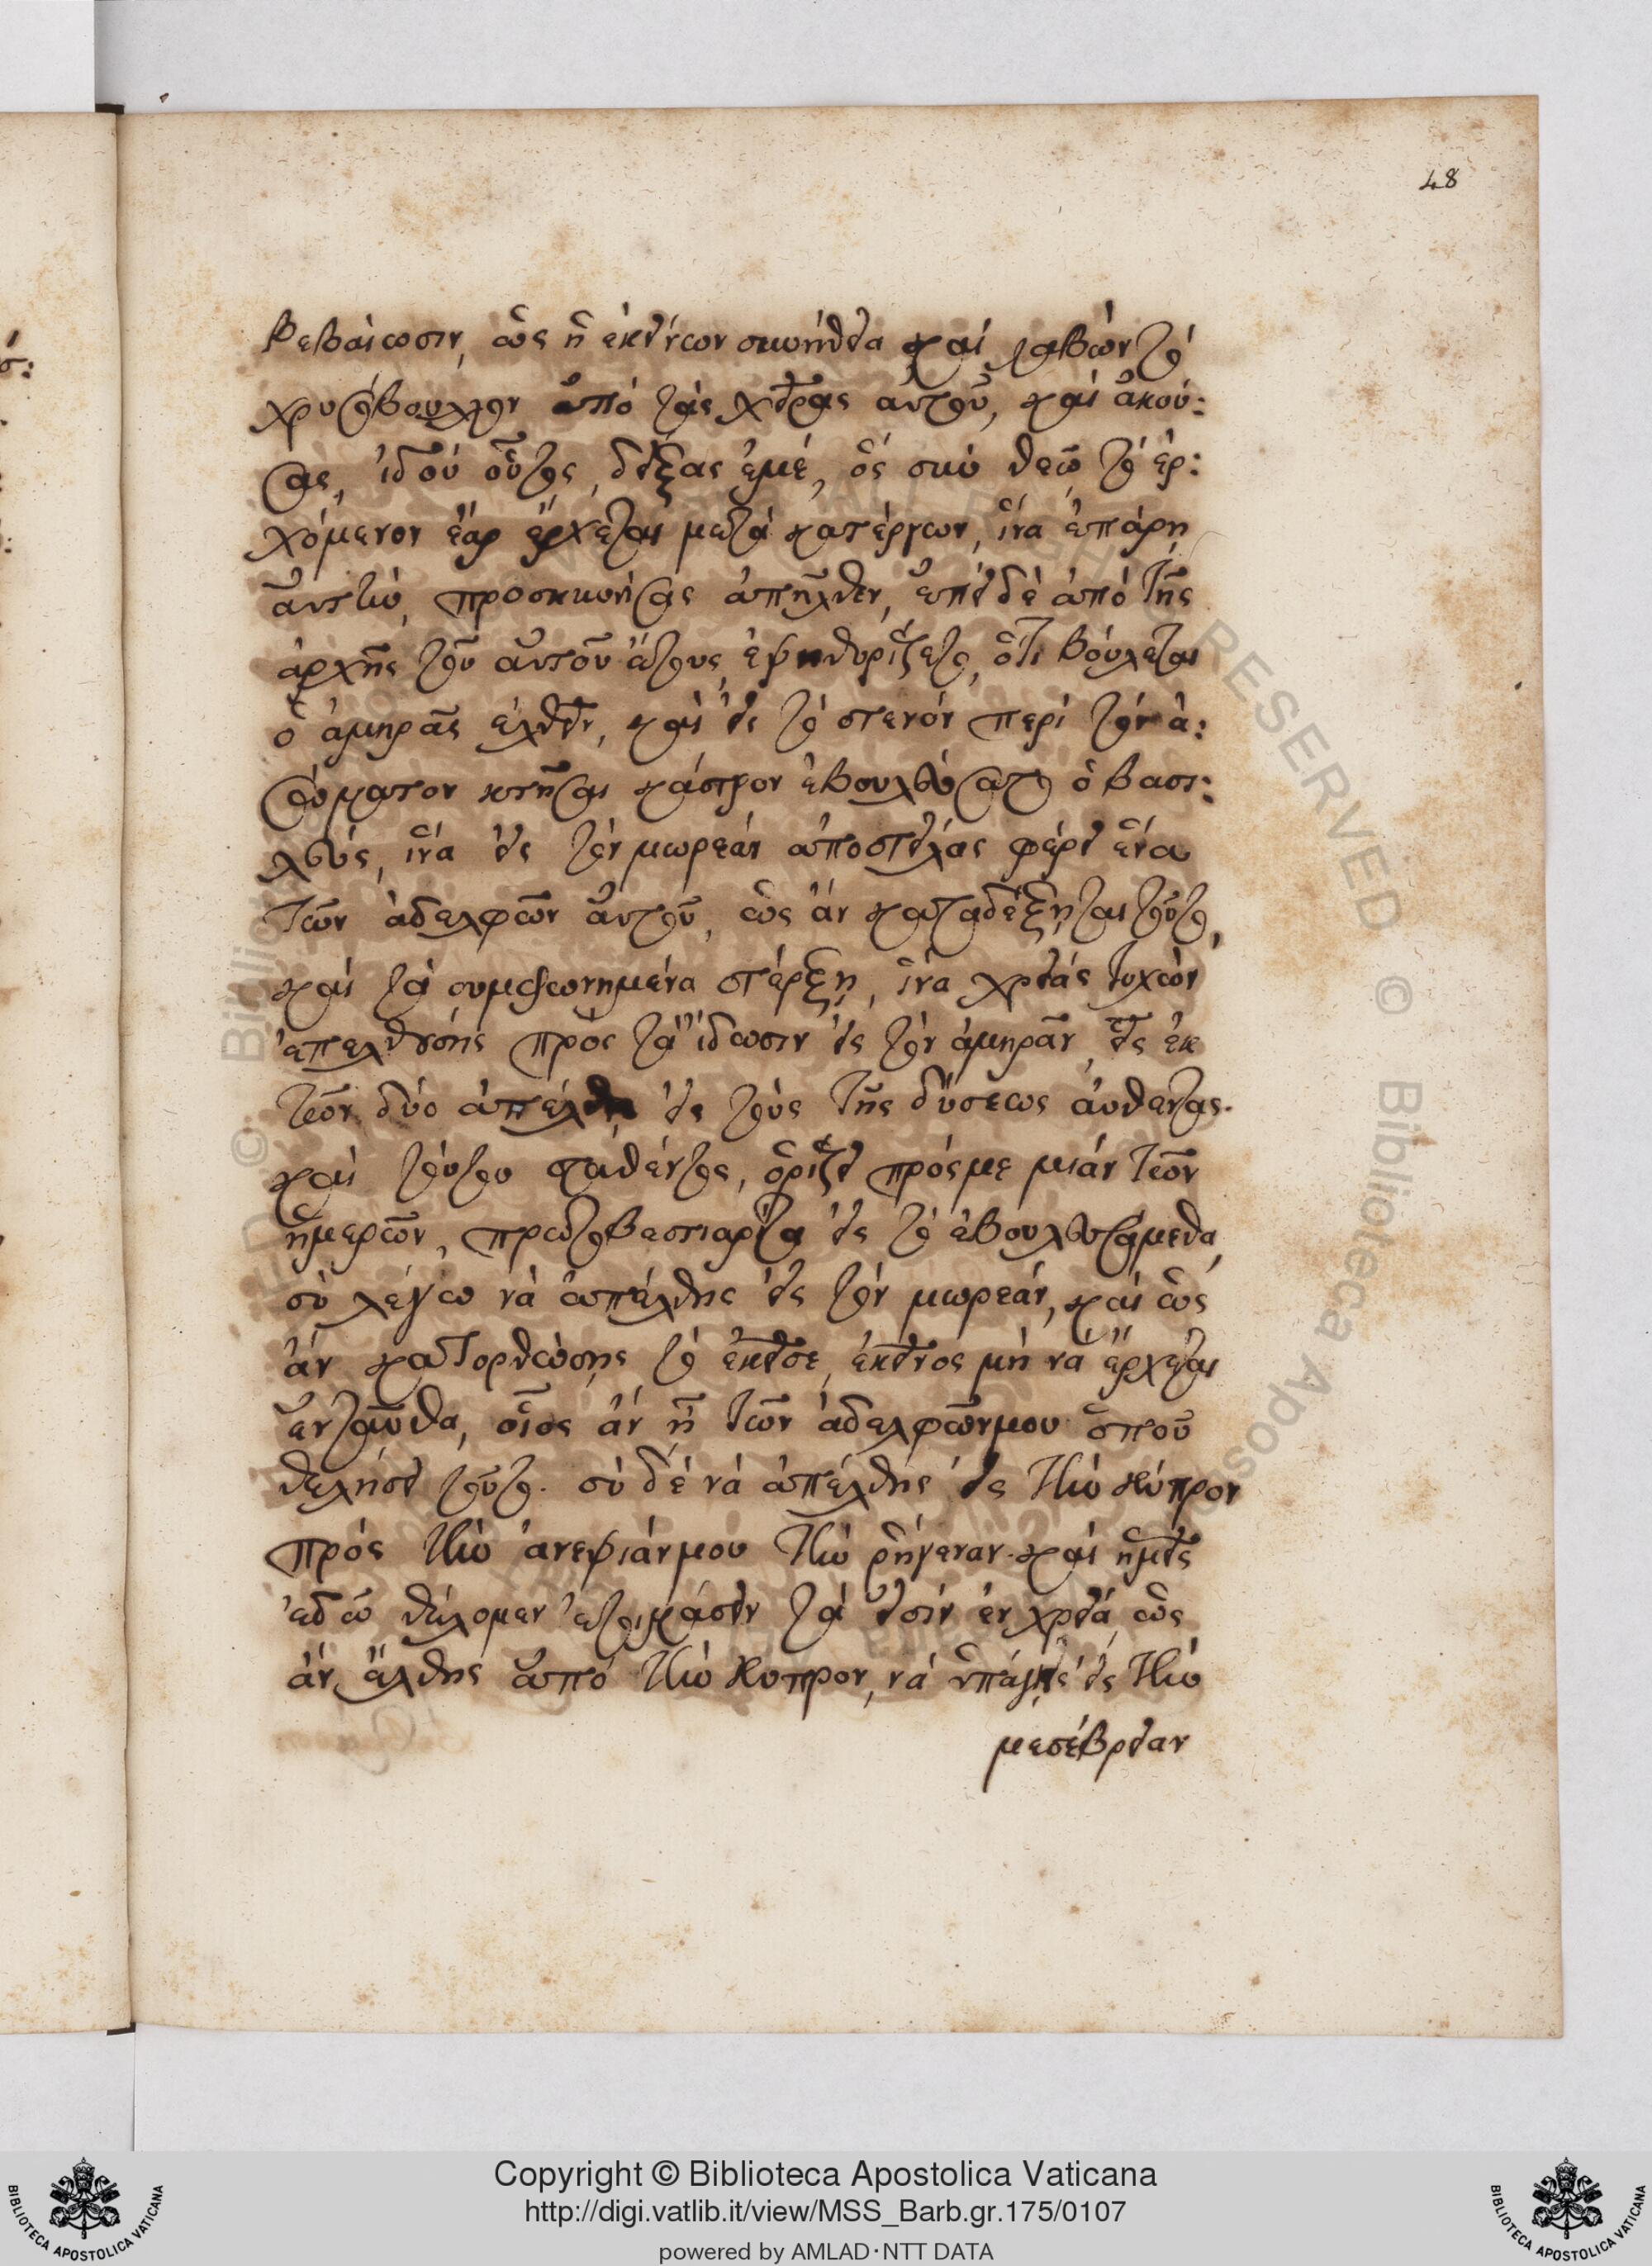 48
βεβαίωσιν, ὡς ἡ ἐκείνων συνήθεια καὶ λαβὼν τὸ
χρυσόβουλλον ἀπὸ τὰς χεῖρας αὐτοῦ, καὶ ἀκού:
σας, ἰδοὺ οὗτος, δείξας ἐμέ, ὃς σὺν θεῷ τὸ ἐρ:
χόμενον ἔαρ ἔρχεται μετὰ κατέργων, ἵνα ἐπάρη
αὐτὴν, προσκυνήσας ἀπῆλθεν, ἐπεὶ δὲ ἀπὸ τῆς
ἀρχῆς τοῦ αὐτοῦ ἔτους, ἐψηθυρίζετο, ὅτι βούλεται
ὁ ἀμηρᾶς ἐλθεῖν, καὶ εἰς τὸ στενὸν περὶ τὸν ἀ:
σώματον κτῆσαι κάστρον ἐβουλεύσατο ὁ βασι:
λεύς, ἵνα εἰς τὸν μωρεάν ἀποστείλας φέρει ἕνα
τῶν ἀδελφῶν αὐτοῦ, ὡς ἂν καταδέξηται τοῦτο,
καὶ τὰ συμφωνημένα στέρξη, ἵνα χρείας τυχὼν
ἐπελθούσης πρὸς τὰ ἴδωσιν εἰς τὸν ἀμηρᾶν, εἷς ἐκ
τῶν δύο ἀπέλθη εἰς τοὺς τῆς δύσεως αὐθέντας.
καὶ τούτου σταθέντος, ὁρίζει πρός με μιὰν τῶν
ἡμερῶν, πρωτοβεστιαρίτα εἰς τὸ ἐβουλευσάμεθα,
σὺ λέγω νὰ ἀπέλθης εἰς τὸν μωρεάν, καὶ ὡς
ἂν κατορθώσης τὸ ἐκεῖσε, ἐκεῖνος μὴ νὰ ἔρχεται
ἐνταῦθα, οἷος ἂν ἦ τῶν ἀδελφῶν μου ὁποῦ
θελήσει τοῦτο. σὺ δὲ νὰ ἀπέλθης εἰς τὴν κύπρον
πρὸς τὴν ἀνεψιάν μου τὴν ρήγεναν. καὶ ἡμεῖς
ἐδῶ θέλομεν ἑτοιμάσειν τὰ εἰσὶν ἐν χρεία, ὡς
ἂν ἔλθης ἀπὸ τὴν κυπρον, νὰ ὑπάγης εἰς τὴν
μεσέβρειαν
Copyright © Biblioteca Apostolica Vaticana
http://digi.vatlib.it/view/MSS_Barb.gr.175/0107
powered by AMLAD·NTT DATA
BIBLIOTECA APOSTOLICA VATICANA
BIBLIOTECA APOSTOLICA VATICANA